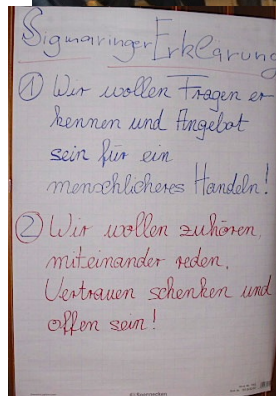 Sigmaringer Erklärung
① Wir wollen Fragen er
kennen und Angebot
sein für ein
menschlicheres Handeln!
② Wir wollen zuhören,
miteinander reden,
Vertrauen schenken und
offen sein!